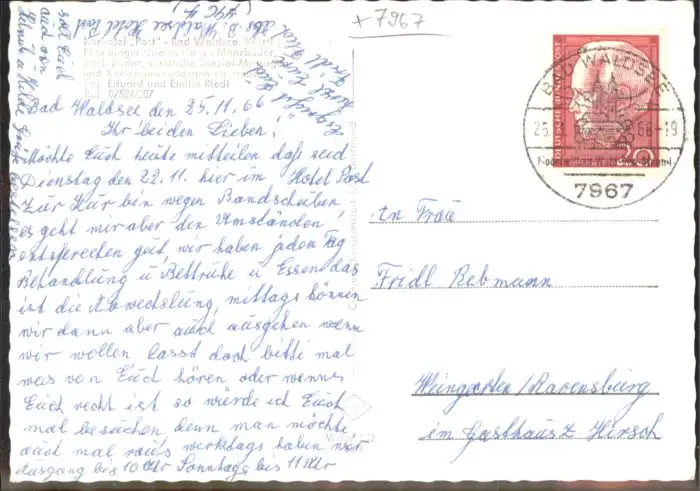 + 7967
Kurhotel "Post" - Bad Waldsee
Bes. Eduard und Emilie Riedl
Ruf 07524/207
Bad Waldsee den 25.11.66
Ihr beiden Lieben!
Möchte Euch heute mitteilen daß seid
Dienstag den 22.11. hier im Hotel Post
zur Kur bin wegen Bandscheiben
es geht mir aber den Umständen
entsprechen gut, wir haben jeden Tag
Behandlung u Bettruhe u Essen das
ist die Abwechslung, mittags können
wir dann aber auch ausgehen wenn
wir wollen lasst doch bitte mal
was von Euch hören oder wenns
Euch recht ist so würde ich Euch
mal besuchen denn man möchte
auch mal raus werktags haben wir
Ausgang bis 10 Uhr Sonntags bis 11 Uhr
BAD WALDSEE
7967
DEUTSCHE BUNDESPOST
20
An Frau
Fridl Bebmann
Weingarten/Ravensburg
im Gasthaus z Hirsch